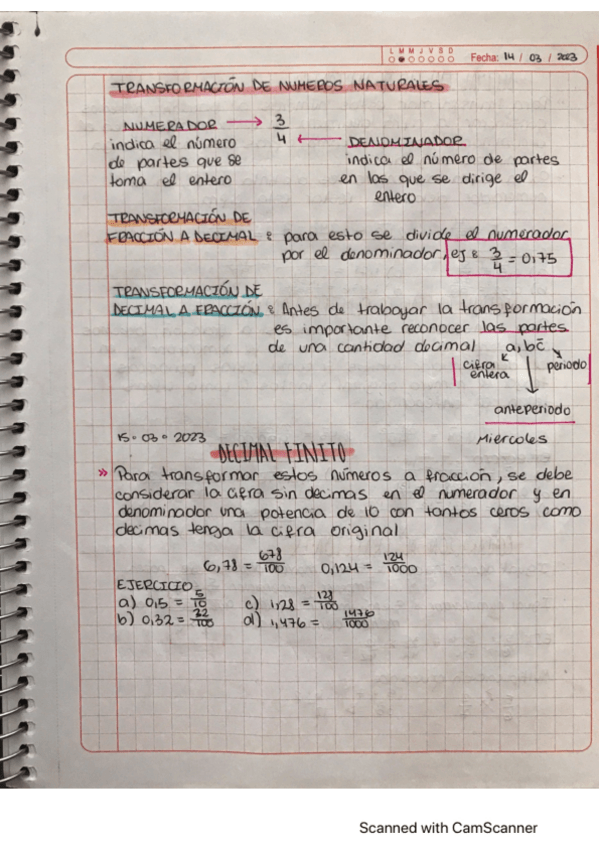 L M M J V S D
Fecha: 14 / 03 / 2023
TRANSFORMACIÓN DE NUMEROS NATURALES
NUMERADOR → 3/4 ← DENOMINADOR
indica el número
de partes que se
toma el entero
indica el número de partes
en las que se dirige el
entero
TRANSFORMACIÓN DE
FRACCIÓN A DECIMAL : para esto se divide el numerador
por el denominador, ej : 3/4 = 0,75
TRANSFORMACIÓN DE
DECIMAL A FRACCIÓN : Antes de trabajar la transformación
es importante reconocer las partes
de una cantidad decimal a, bc̄
cifra entera
periodo
anteperiodo
15 . 03 . 2023
Miercoles
DECIMAL FINITO
» Para transformar estos números a fracción, se debe
considerar la cifra sin decimas en el numerador y en
denominador una potencia de 10 con tantos ceros como
decimas tenga la cifra original
6,78 = 678/100 0,124 = 124/1000
EJERCICIO
a) 0,5 = 5/10 c) 1,28 = 128/100
b) 0,32 = 32/100 d) 1,476 = 1476/1000
Scanned with CamScanner